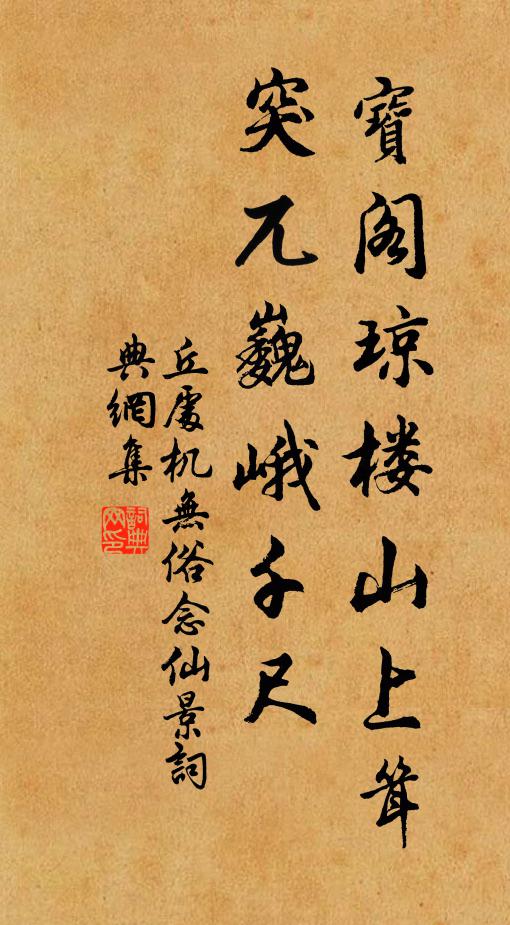 寶阁琼楼山上耸
突兀巍峨千尺
丘處机無俗念仙景詞
典網集
詞典网印